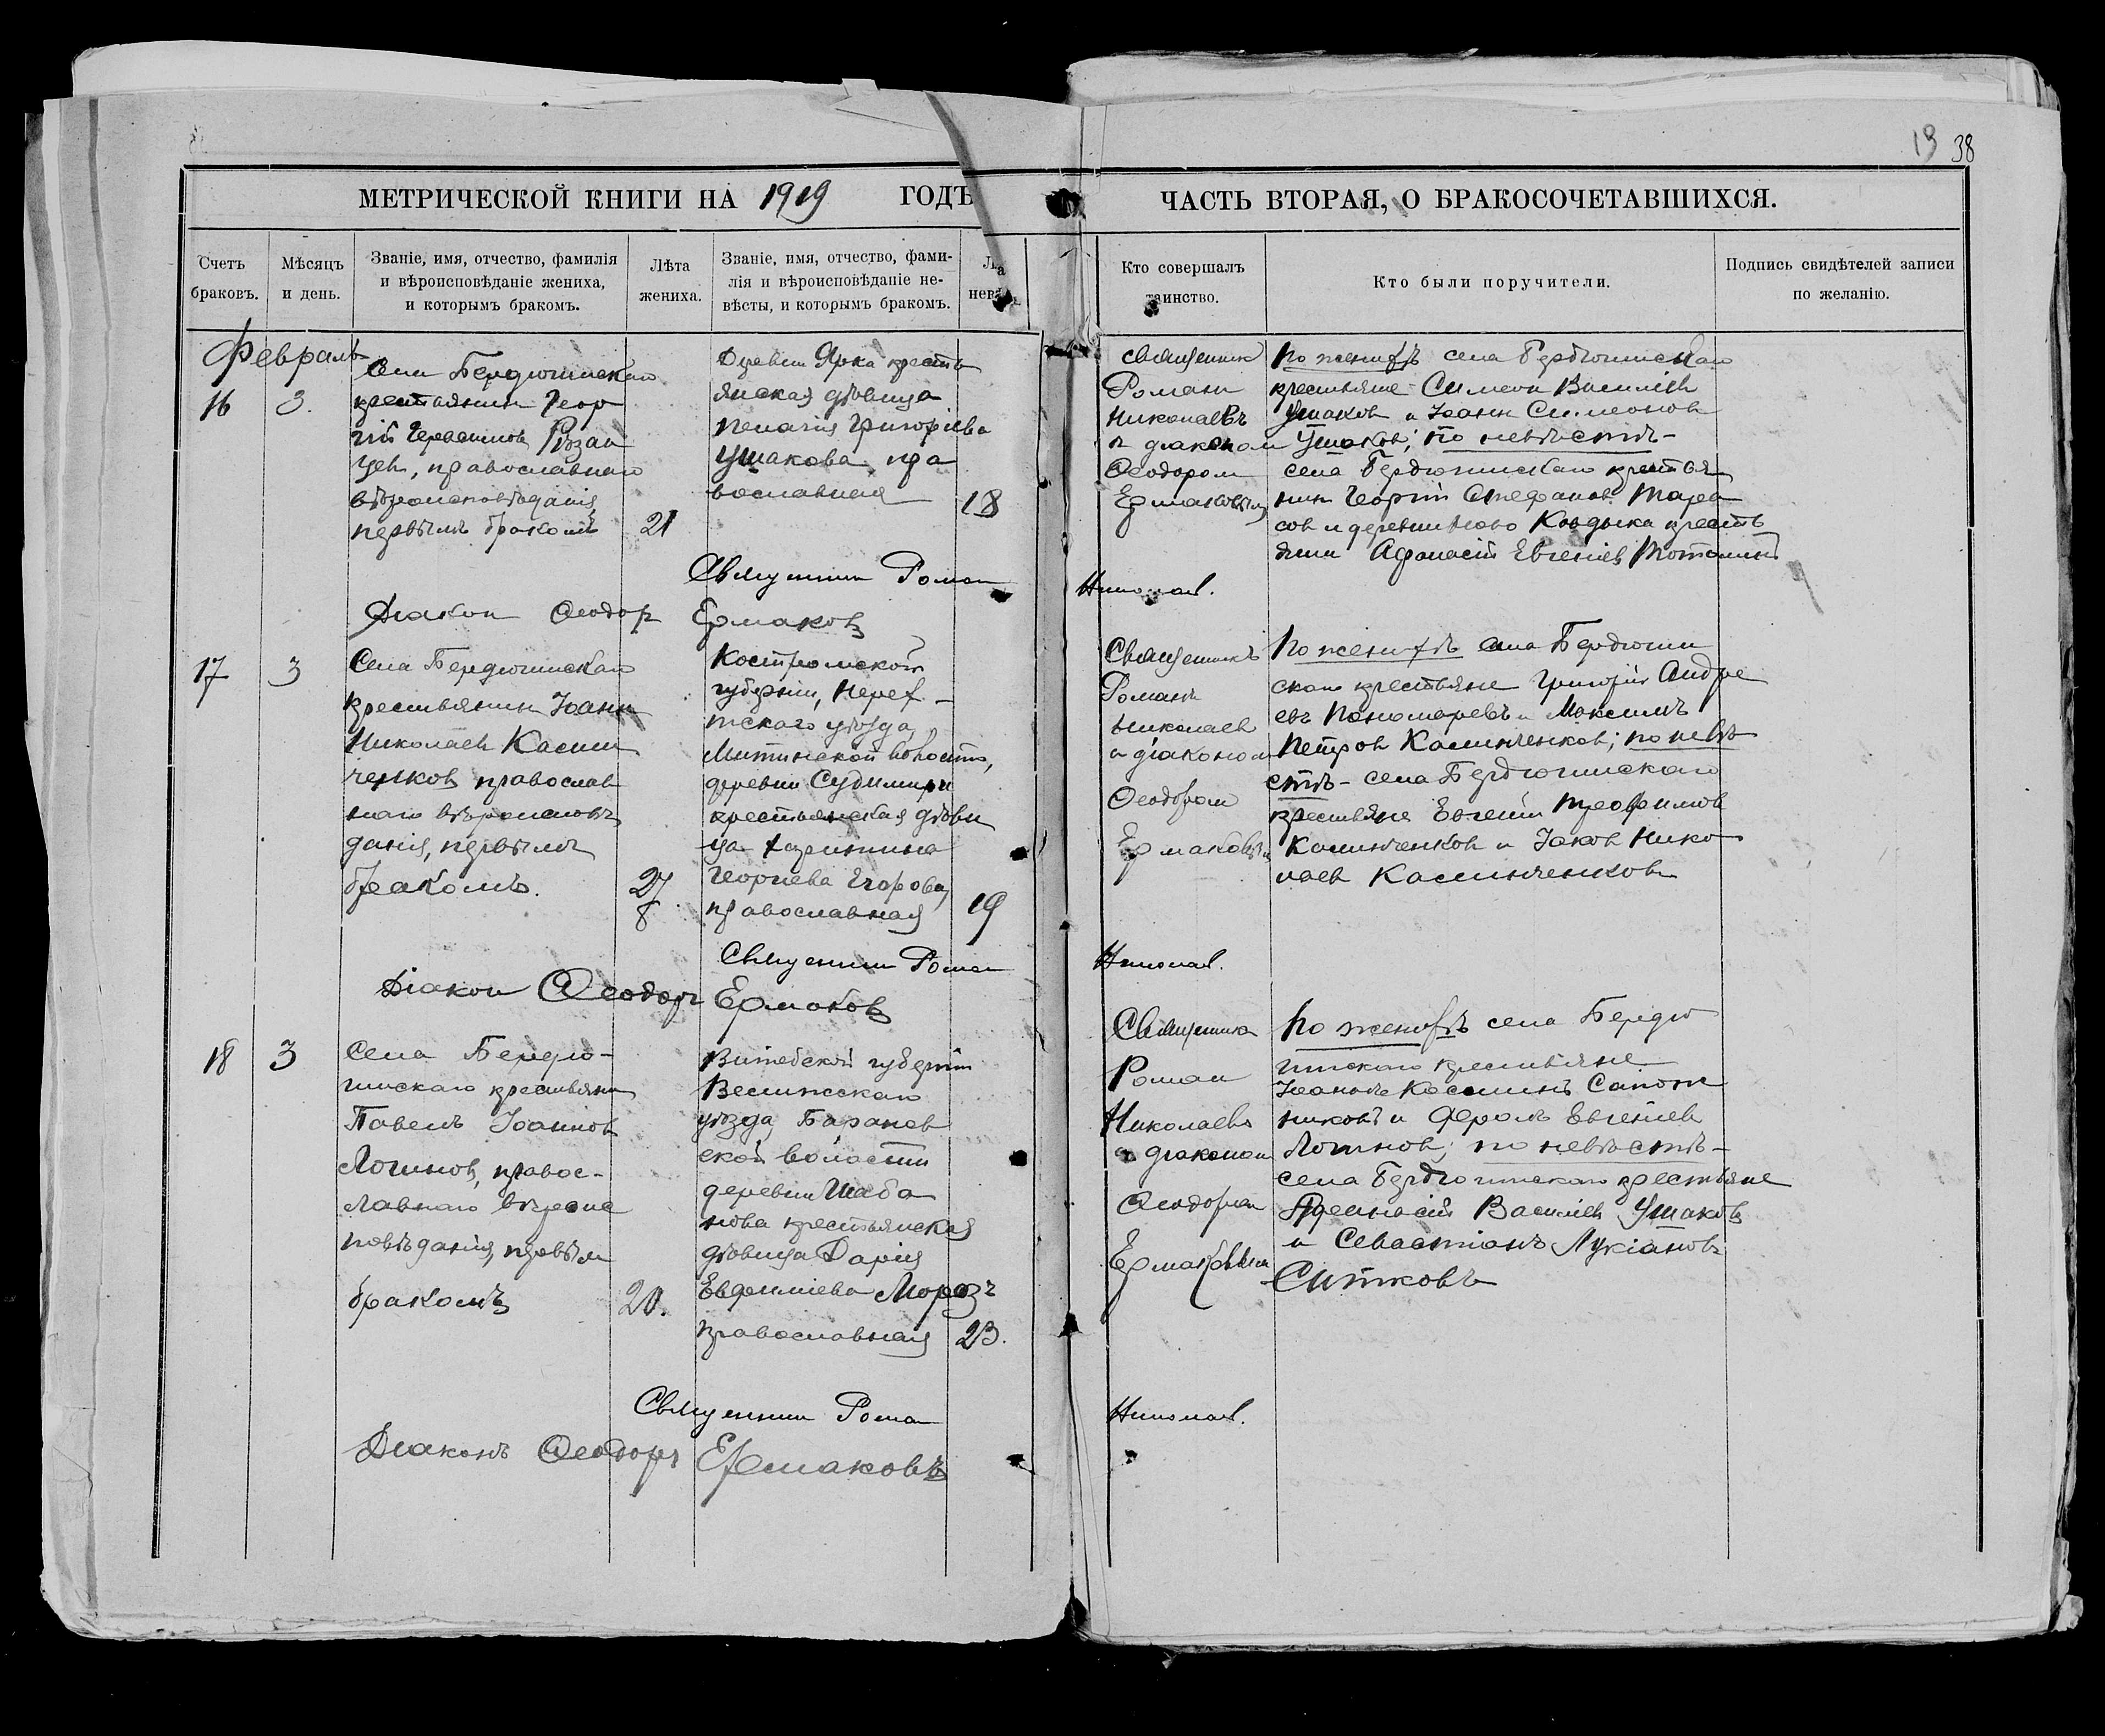 19 38
МЕТРИЧЕСКОЙ КНИГИ НА 1919 ГОДЪ
ЧАСТЬ ВТОРАЯ, О БРАКОСОЧЕТАВШИХСЯ.
Счетъ браковъ.
Мѣсяцъ и день.
Званіе, имя, отчество, фамилія
и вѣроисповѣданіе жениха,
и которымъ бракомъ.
Лѣта
жениха.
Званіе, имя, отчество, фами-
лія и вѣроисповѣданіе не-
вѣсты, и которымъ бракомъ.
Кто совершалъ
таинство.
Кто были поручители.
Подпись свидѣтелей записи
по желанію.
Февраль
16 3.
Села Бердюгинскаго
крестьянинъ Геор
гій
Рязан
цев, православнаго
вѣроисповѣданія,
первымъ бракомъ
21
Деревни Ярка кресть
янская дѣвица
Пелагія Григоріева
Ушакова, пра
вославная
18
священник
Роман
Николаевъ
с діаконом
Ѳеодором
Ермаковым
По женихѣ села Бердюгинскаго
крестьяне Симеон Василіев
Ушаков и Іоанн Симеонов
Ушаков; по невѣстѣ-
села Бердюгинскаго крестья
нин Георгій Стефанов Тара
сов и деревни
кресть
янин Афанасій Евгеніев
Священник Роман Николаев.
Діакон Ѳеодор Ермаков
17 3
Села Бердюгинскаго
крестьянин Іоанн
Николаев Касмин
ченков православ
наго вѣроисповѣ
данія, первымъ
бракомъ.
27
Костромской
губерніи, Нерех-
тскаго уѣзда,
Митинской волости,
деревни
крестьянская дѣви
ца Харитина
Георгіева Егорова,
православная
19
Священникъ
Романъ
Николаев
с діаконом
Ѳеодором
Ермаковым
По женихѣ села Бердюгин
скаго крестьяне Григорій Андре
евъ Пономаревъ и Максимъ
Петров Касминченков; по невѣ
стѣ- села Бердюгинскаго
крестьяне Евгеній Трофимов
Касминченков и Іаков Нико
лаев Касминченков
Священник Роман Николаев.
Діакон Ѳеодоръ Ермаков
18 3
Села Бердю-
гинскаго крестьянин
Павелъ Іоаннов
Логинов, правос-
лавнаго вѣроис
повѣданія, первым
бракомъ
20.
Витебской губерніи
Велижскаго
уѣзда, Баранов
ской волости
деревни Шаба
нова крестьянская
дѣвица Дарія
Евфиміева Морозъ
православная
23.
Священник
Роман
Николаевъ
с діаконом
Ѳеодором
Ермаковым
По женихѣ села Бердю
гинскаго крестьяне
Іоаннъ Косминъ Сапож
никовъ и Фролъ Евгеніев
Логинов; по невѣстѣ-
села Бердюгинскаго крестьяне
Василіев Ушаков
и Севастіанъ Лукіановъ
Ситковъ
Священник Роман Николаев.
Діаконъ Ѳеодоръ Ермаковъ